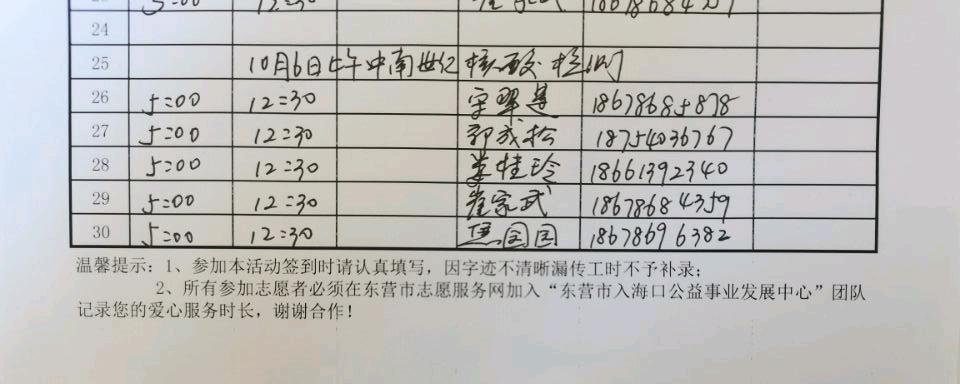 5:00 12:30
24
25 10月6日上午中南世纪核酸检测
26 5:00 12:30 宋翠莲 18678685878
27 5:00 12:30 郭成松 18754036767
28 5:00 12:30 桂玲 18661392340
29 5:00 12:30 崔家武 18678684359
30 5:00 12:30 国国 18678696382
温馨提示：1、参加本活动签到时请认真填写，因字迹不清晰漏传工时不予补录；
2、所有参加志愿者必须在东营市志愿服务网加入“东营市入海口公益事业发展中心”团队
记录您的爱心服务时长，谢谢合作！